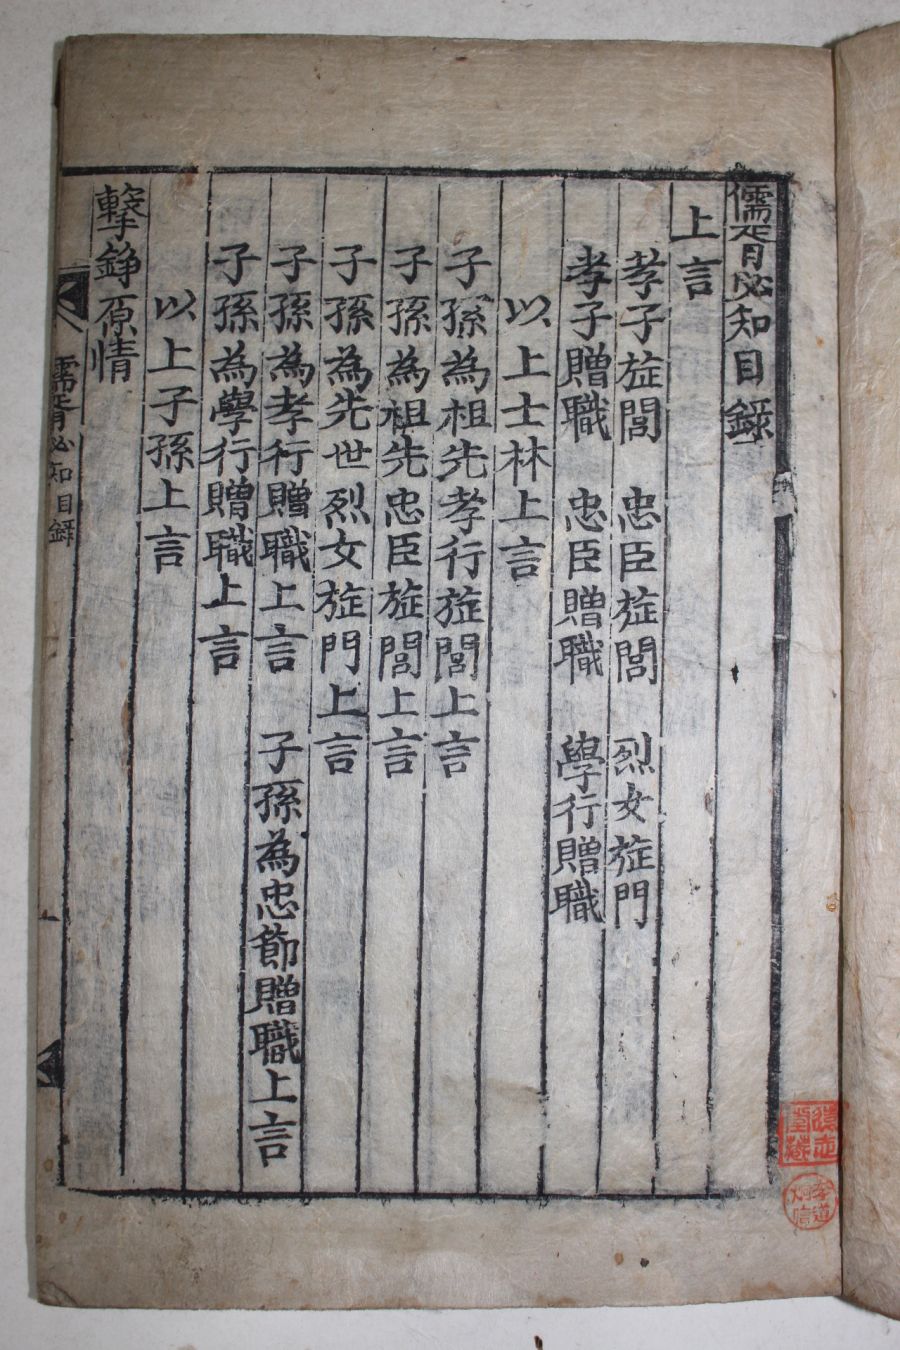 儒胥必知目錄
上言
孝子旌閭 忠臣旌閭 烈女旌門
孝子贈職 忠臣贈職 學行贈職
以上士林上言
子孫為祖先孝行旌閭上言
子孫為祖先忠臣旌閭上言
子孫為先世烈女旌門上言
子孫為孝行贈職上言 子孫為忠節贈職上言
子孫為學行贈職上言
以上子孫上言
擊錚原情
儒胥必知目錄